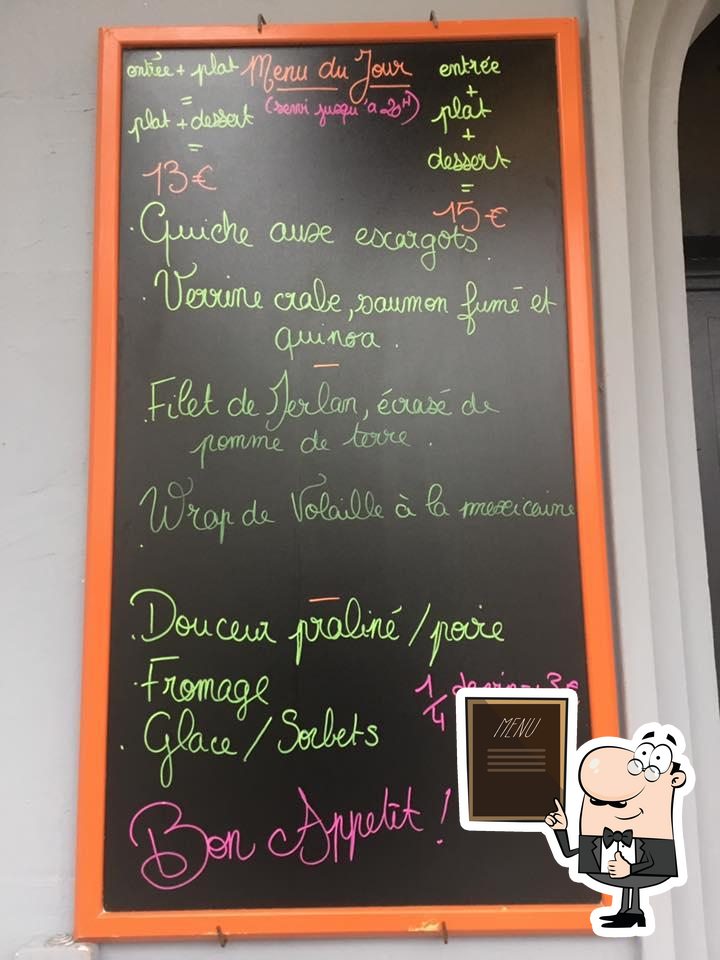 Menu du Jour
(servi jusqu'a 20H)
entrée + plat
=
plat + dessert
=
13€
entrée
+
plat
+
dessert
=
15€
. Quiche aux escargots
. Verrine crabe, saumon fumé et
quinoa .
—
. Filet de Merlan, écrasé de
pomme de terre .
. Wrap de Volaille à la mexicaine
—
. Douceur praliné / poire
. Fromage
. Glace / Sorbets
1/4 de vin
Bon Appetit !
MENU